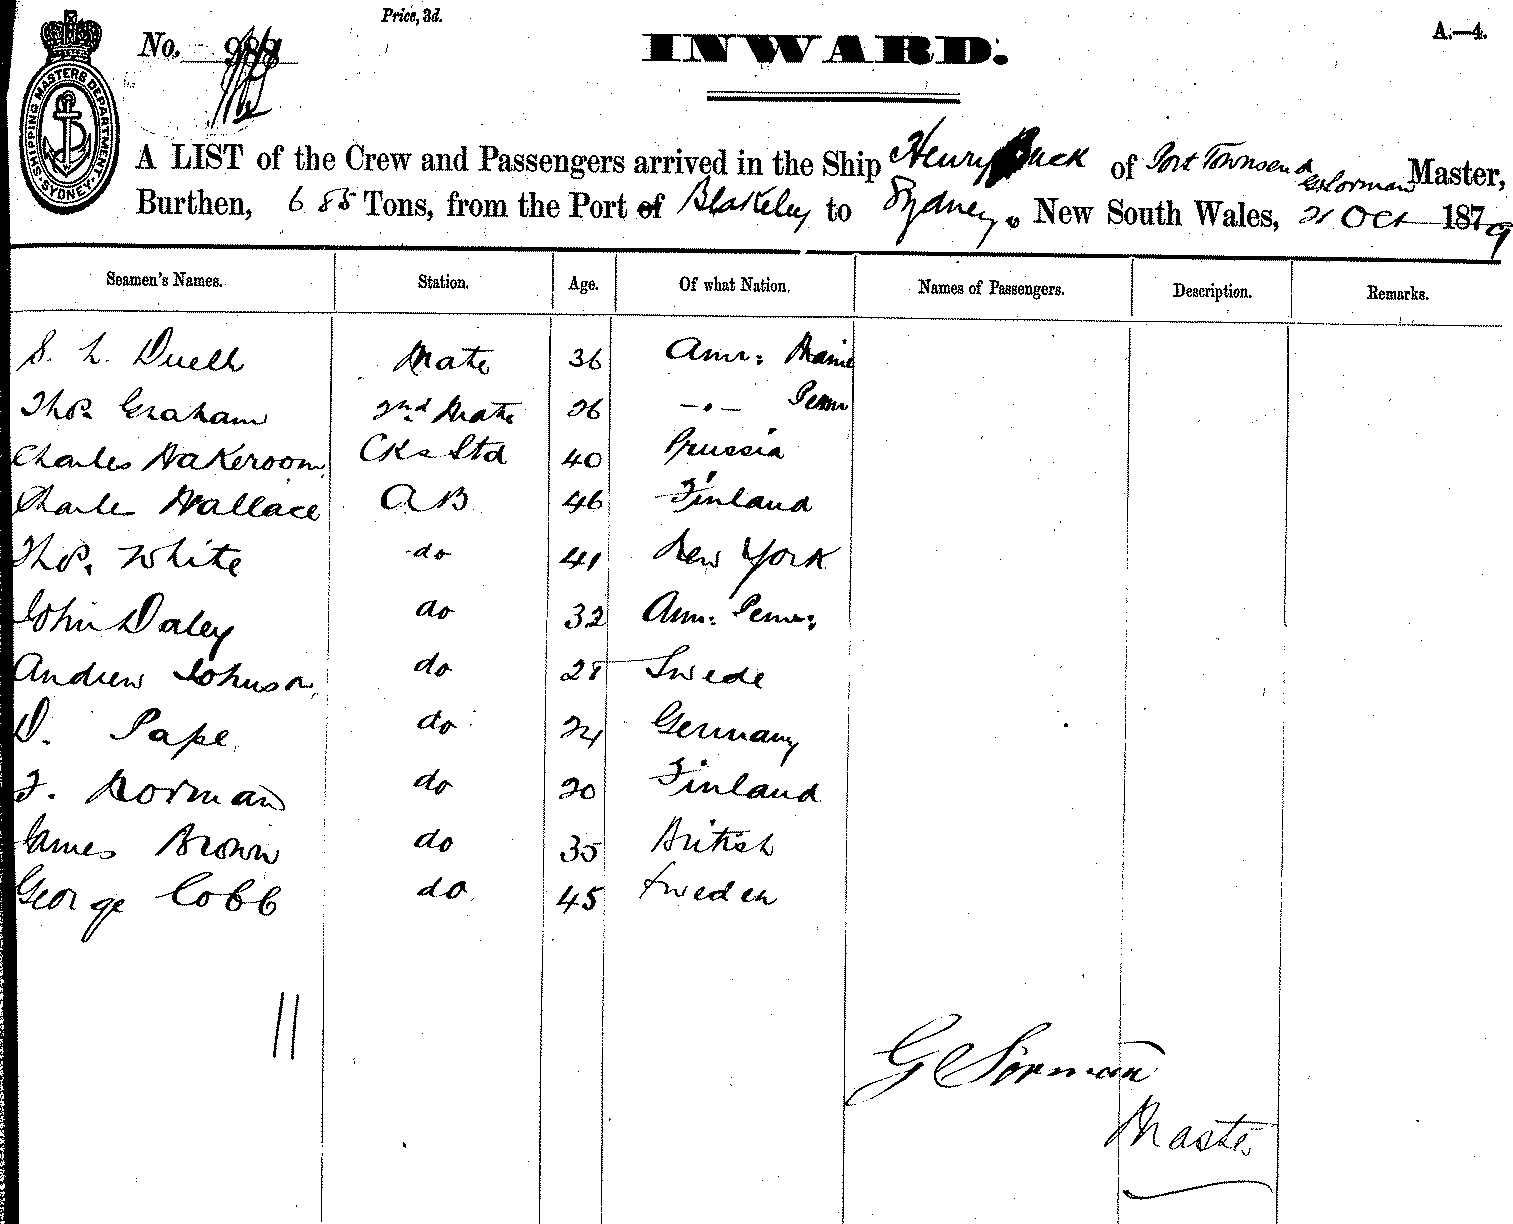 Price, 3d.
A.—4.
No. 988
INWARD.
SHIPPING MASTERS DEPARTMENT. SYDNEY.
A LIST of the Crew and Passengers arrived in the Ship Henry Buck of Port Townsend G C Sorman Master,
Burthen, 688 Tons, from the Port of Blakeley to Sydney. New South Wales, 21 Oct 1879
Seamen's Names. Station. Age. Of what Nation. Names of Passengers. Description. Remarks.
S. L. Duell Mate 36 Amr: Maine
Thos. Graham 2nd Mate 26 —.— Penn
Charles Hakeroom Ck & Std 40 Prussia
Charles Wallace AB 46 Finland
Thos. White do 41 New York
John Daley do 32 Am: Penn:
Andrew Johnson do 28 Swede
D. Pape do 24 Germany
F. Norman do 20 Finland
James Brown do 35 British
George Cobb do 45 Sweden
11
G C Sorman
Master